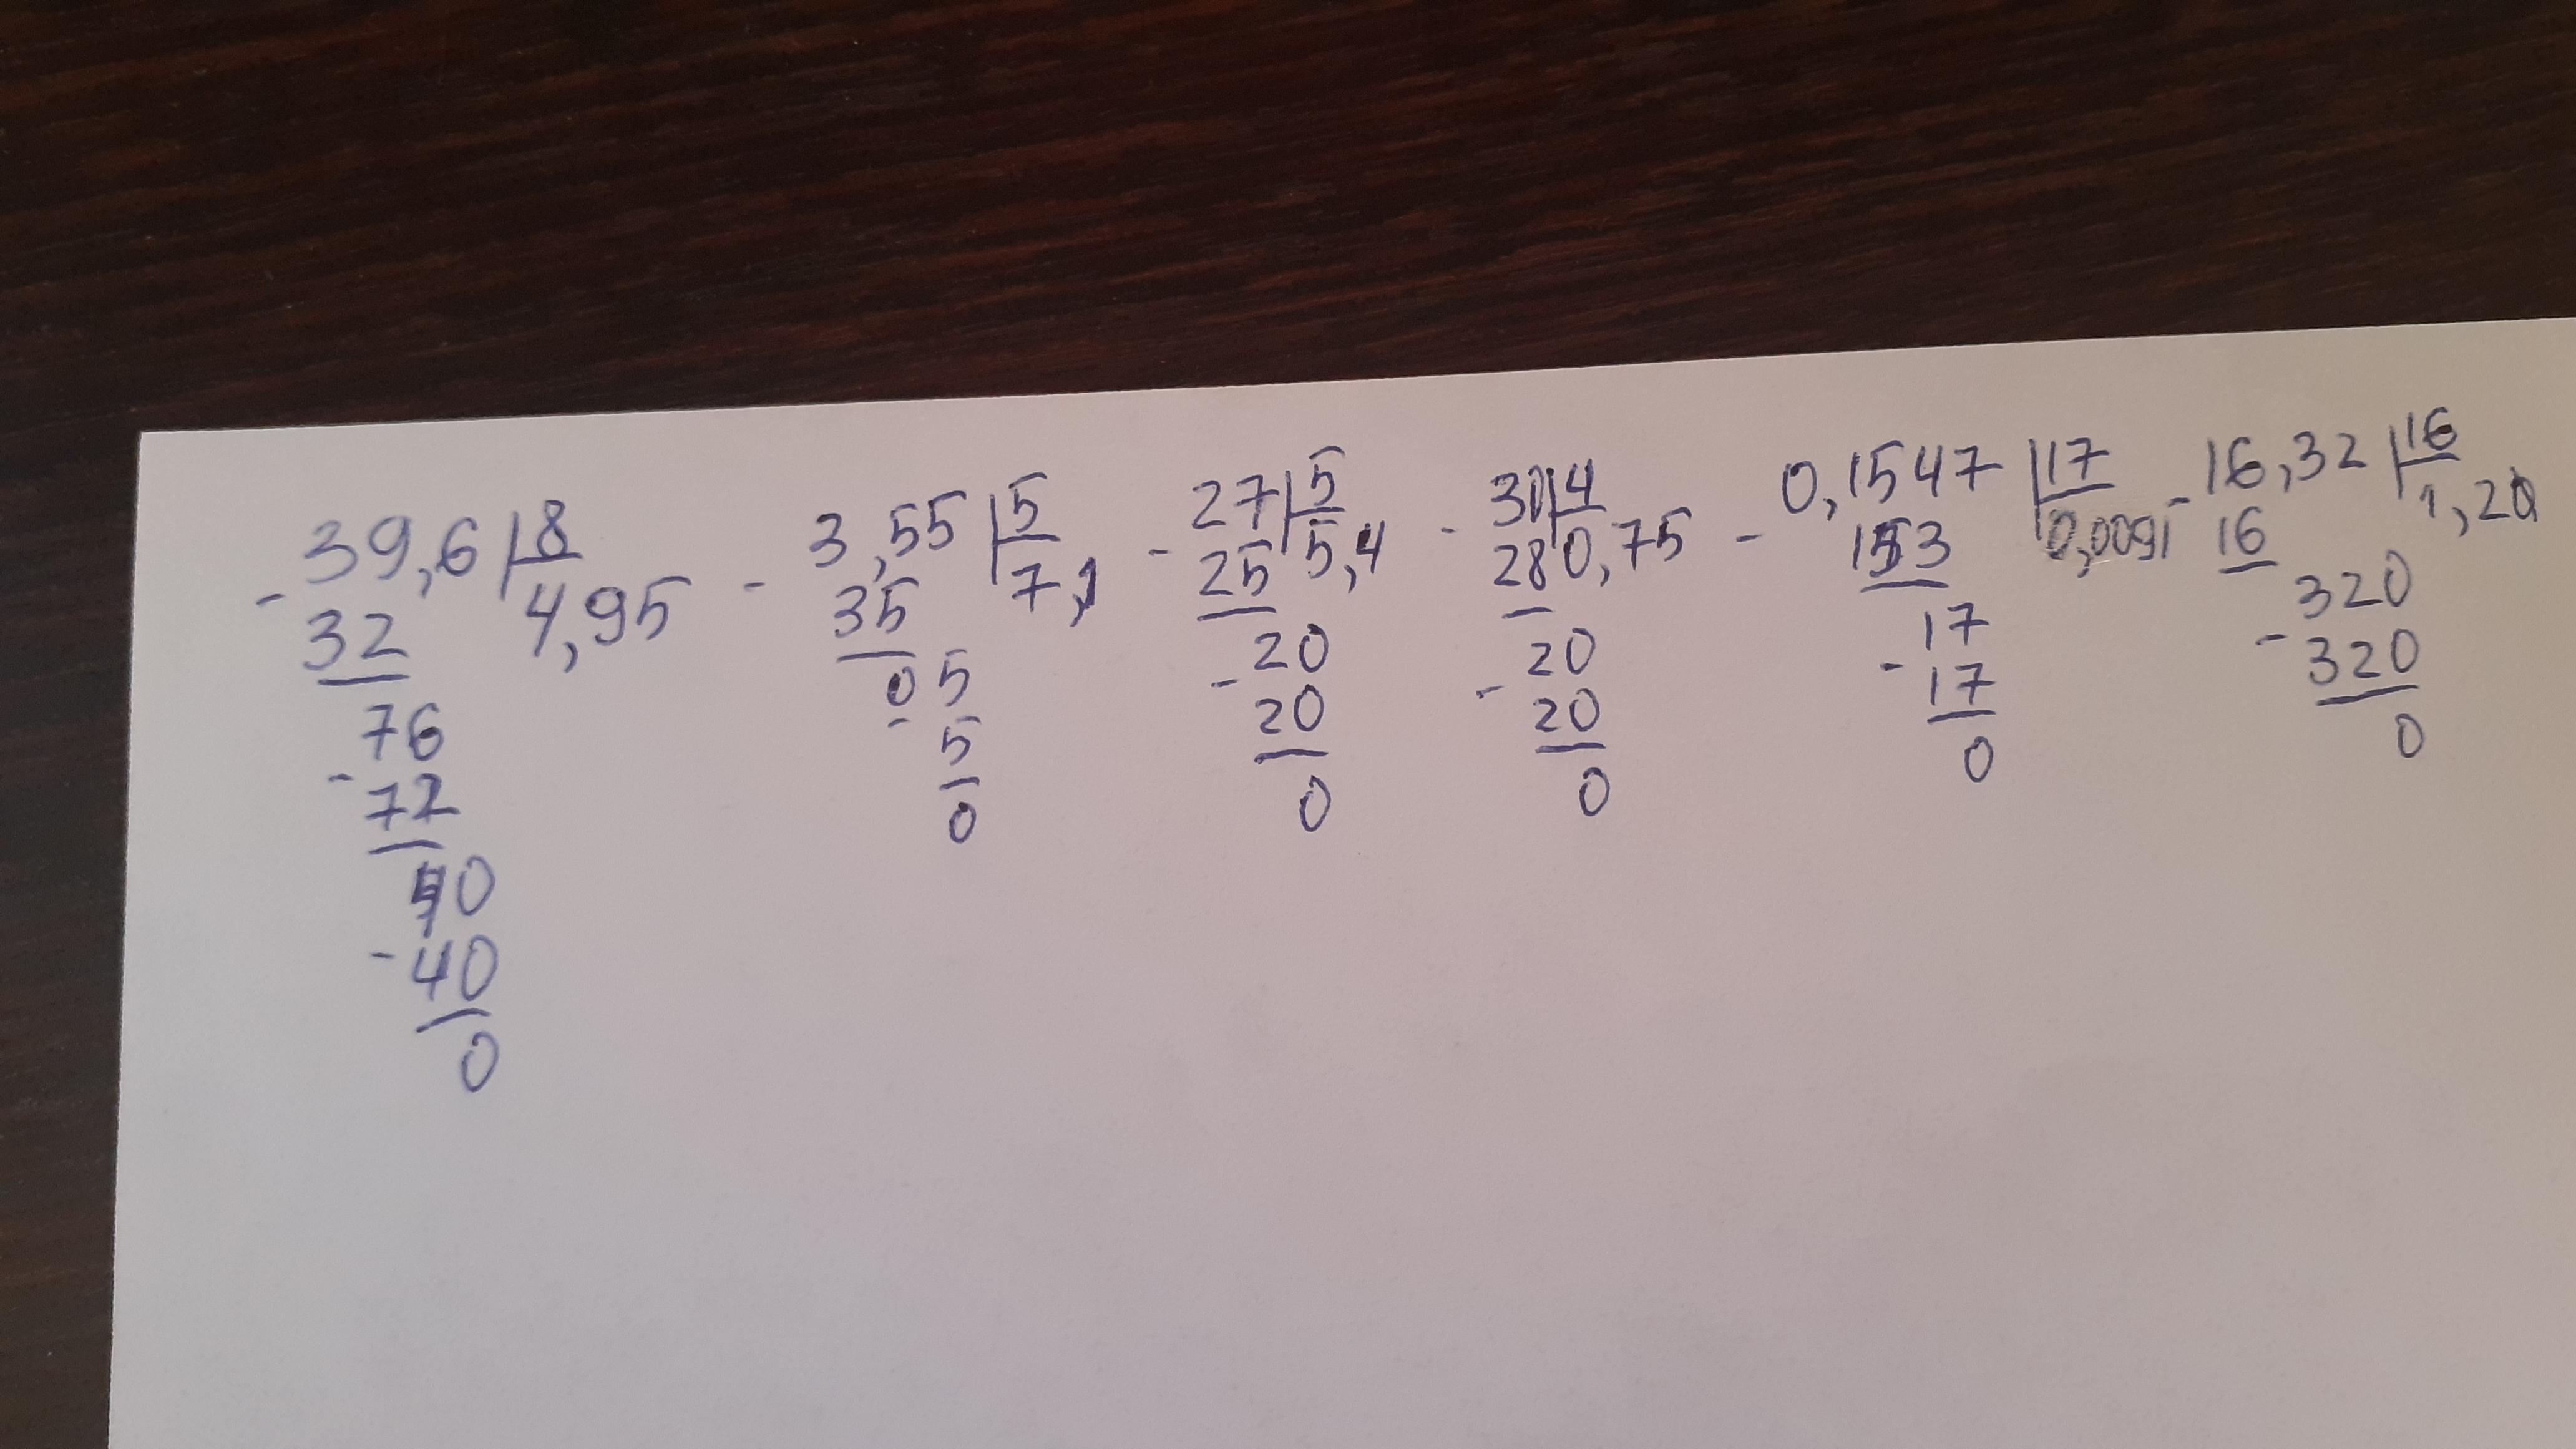 39,6 8
- 32 4,95
76
- 72
40
- 40
0
3,55 5
- 35 7,1
05
- 5
0
27 5
- 25 5,4
20
- 20
0
30 4
- 28 0,75
20
- 20
0
0,1547 17
- 153 0,0091
17
- 17
0
- 16,32 16
16 1,20
320
- 320
0